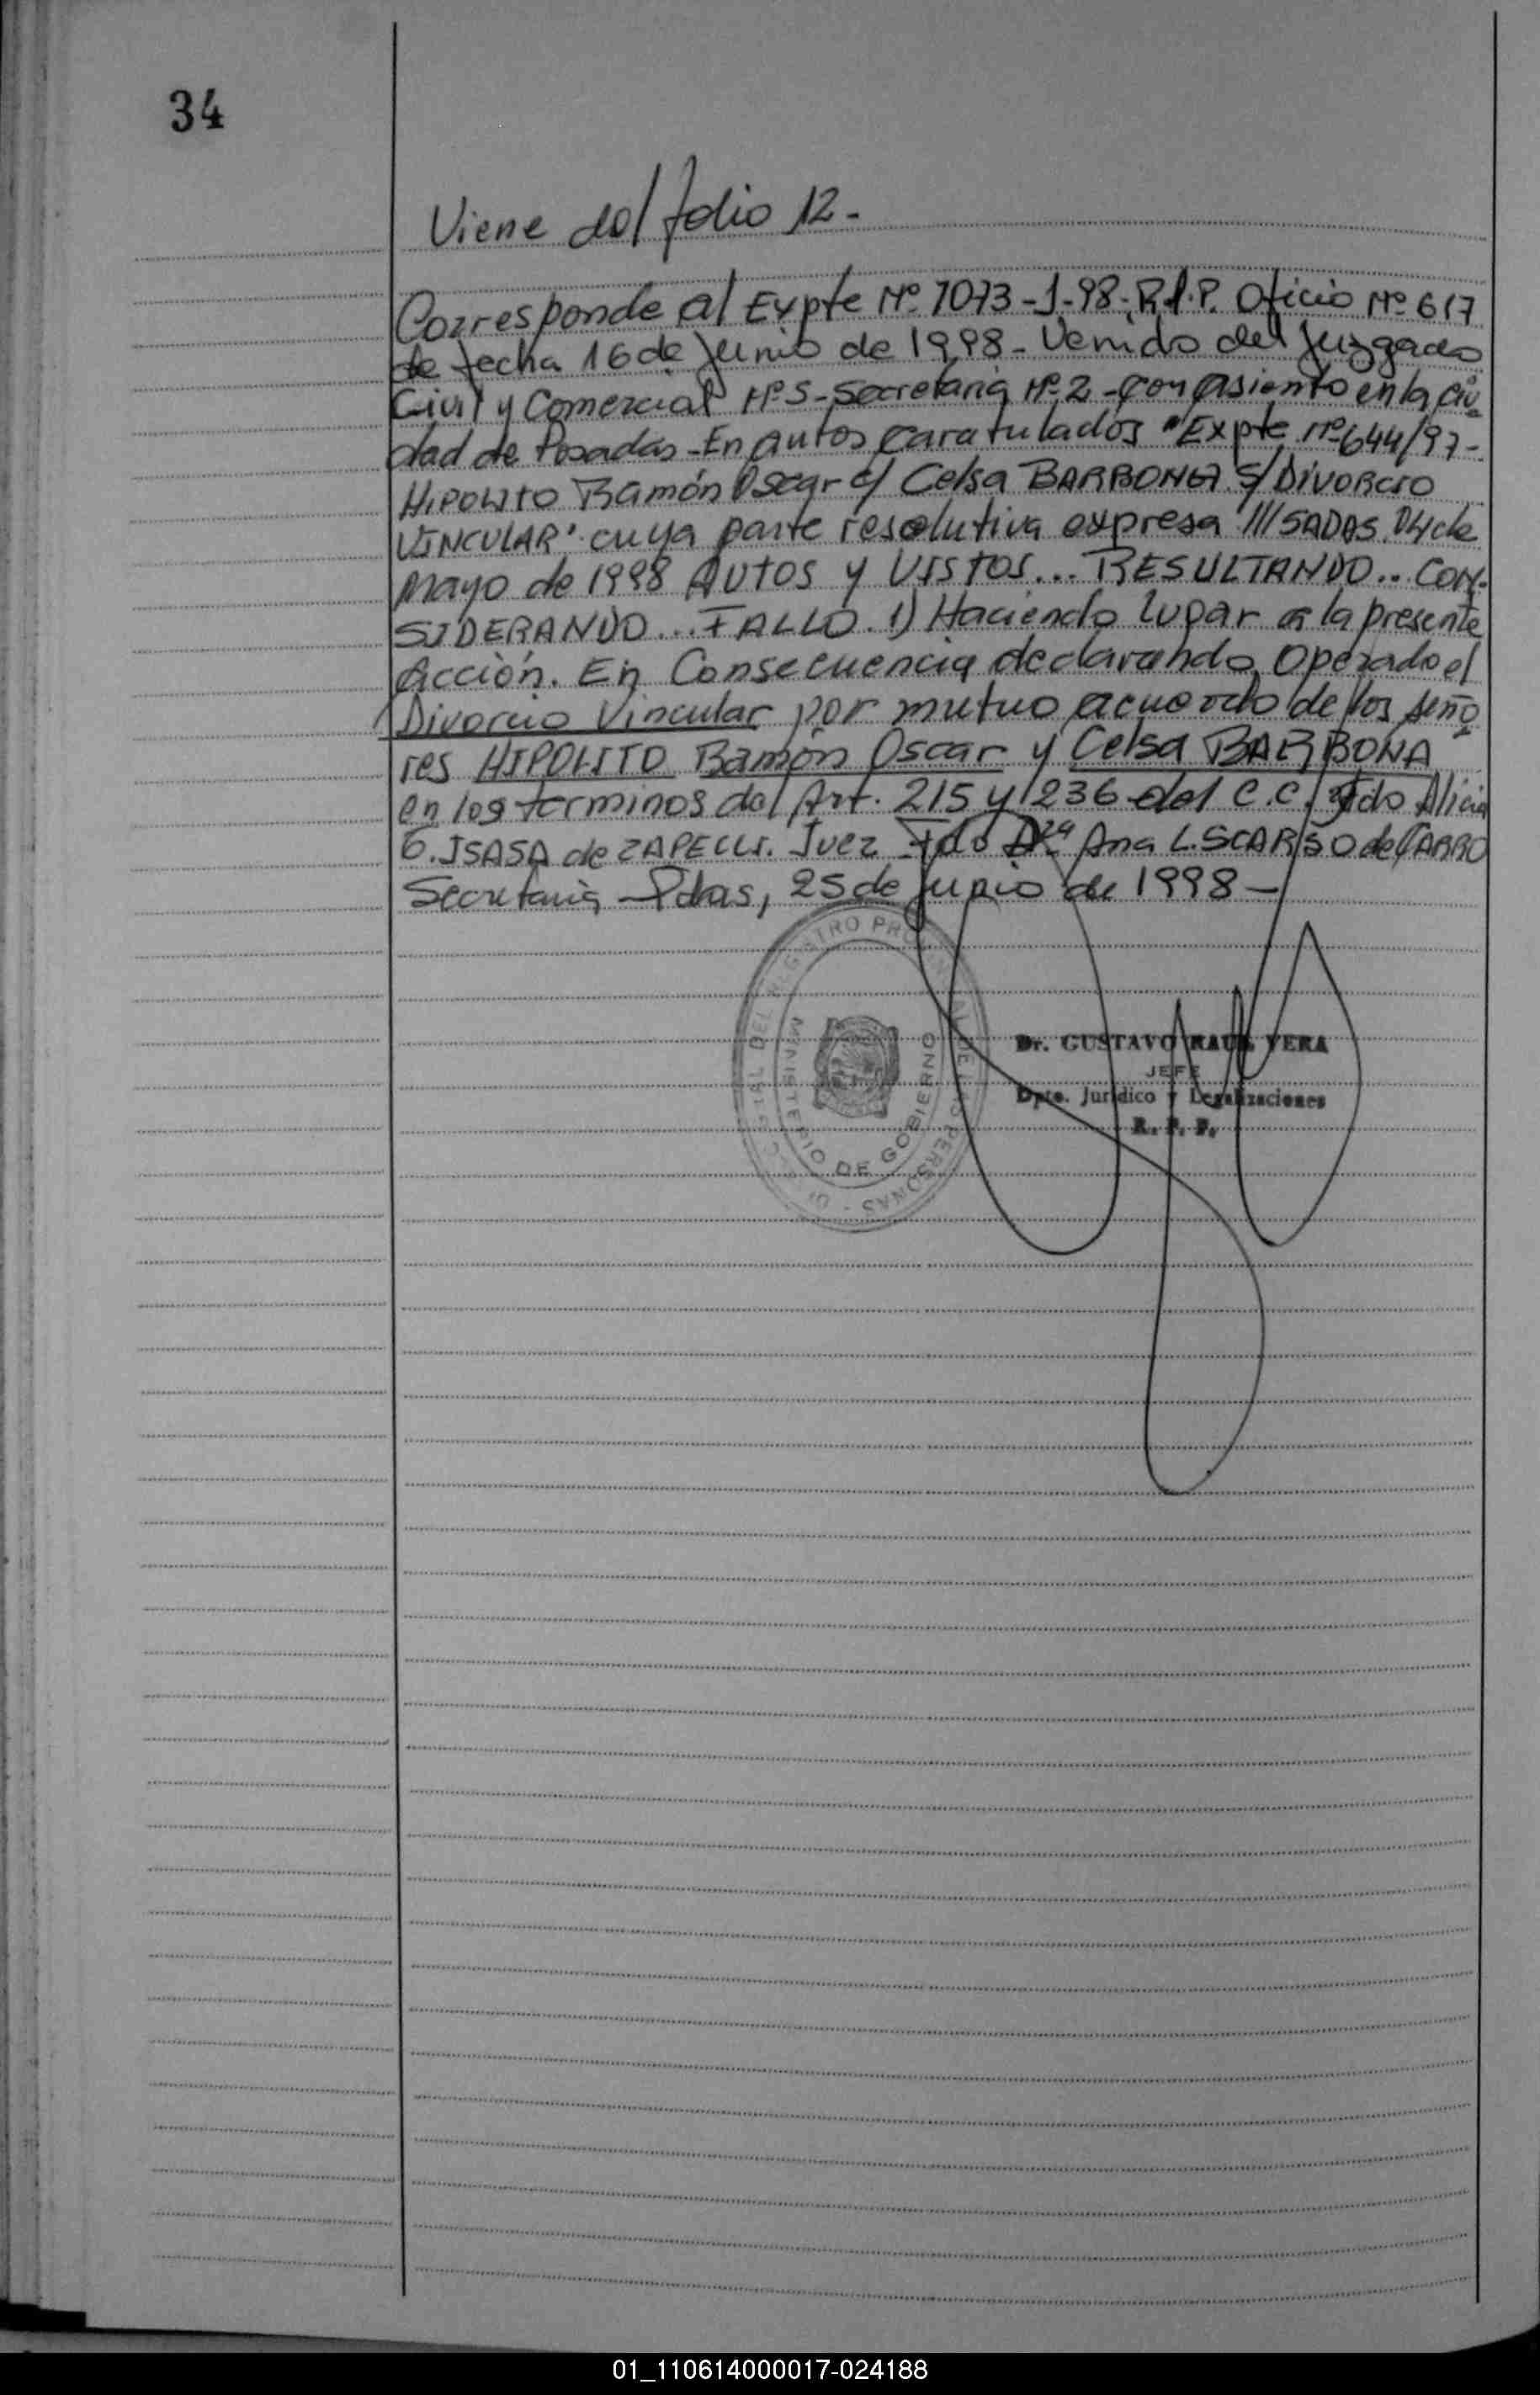 34
Viene del folio 12.-
Corresponde al Expte Nº 7073-J-98-R.P.P. Oficio Nº 617
de fecha 16 de Junio de 1998 - Venido del Juzgado
Civil y Comercial Nº 5 - Secretaria Nº 2 - con asiento en la ciu
dad de Posadas - En autos caratulados "Expte nº 644/97-
HIPOLITO Ramón Oscar c/ Celsa BARBONA S/ DIVORCIO
VINCULAR" cuya parte resolutiva expresa ///SADAS 04 de
Mayo de 1998 AUTOS y VISTOS... RESULTANDO... CON-
SIDERANDO... FALLO. 1) Haciendo lugar a la presente
Acción. En Consecuencia declarando Operado el
Divorcio Vincular por mutuo acuerdo de los seño
res HIPOLITO Ramón Oscar y Celsa BARBONA
en los terminos del Art. 215 y 236 del C.C. Fdo Alicia
G. ISASA de ZAPELLI. Juez Fdo Dra Ana L. SCARSO de FARRO
Secretaria - Pdas, 25 de Junio de 1998 -
REGISTRO PROVINCIAL DE LAS PERSONAS
MINISTERIO DE GOBIERNO
Dr. GUSTAVO RAUL VERA
JEFE
Dpto. Jurídico y Legalizaciones
R. P. P.
01_110614000017-024188